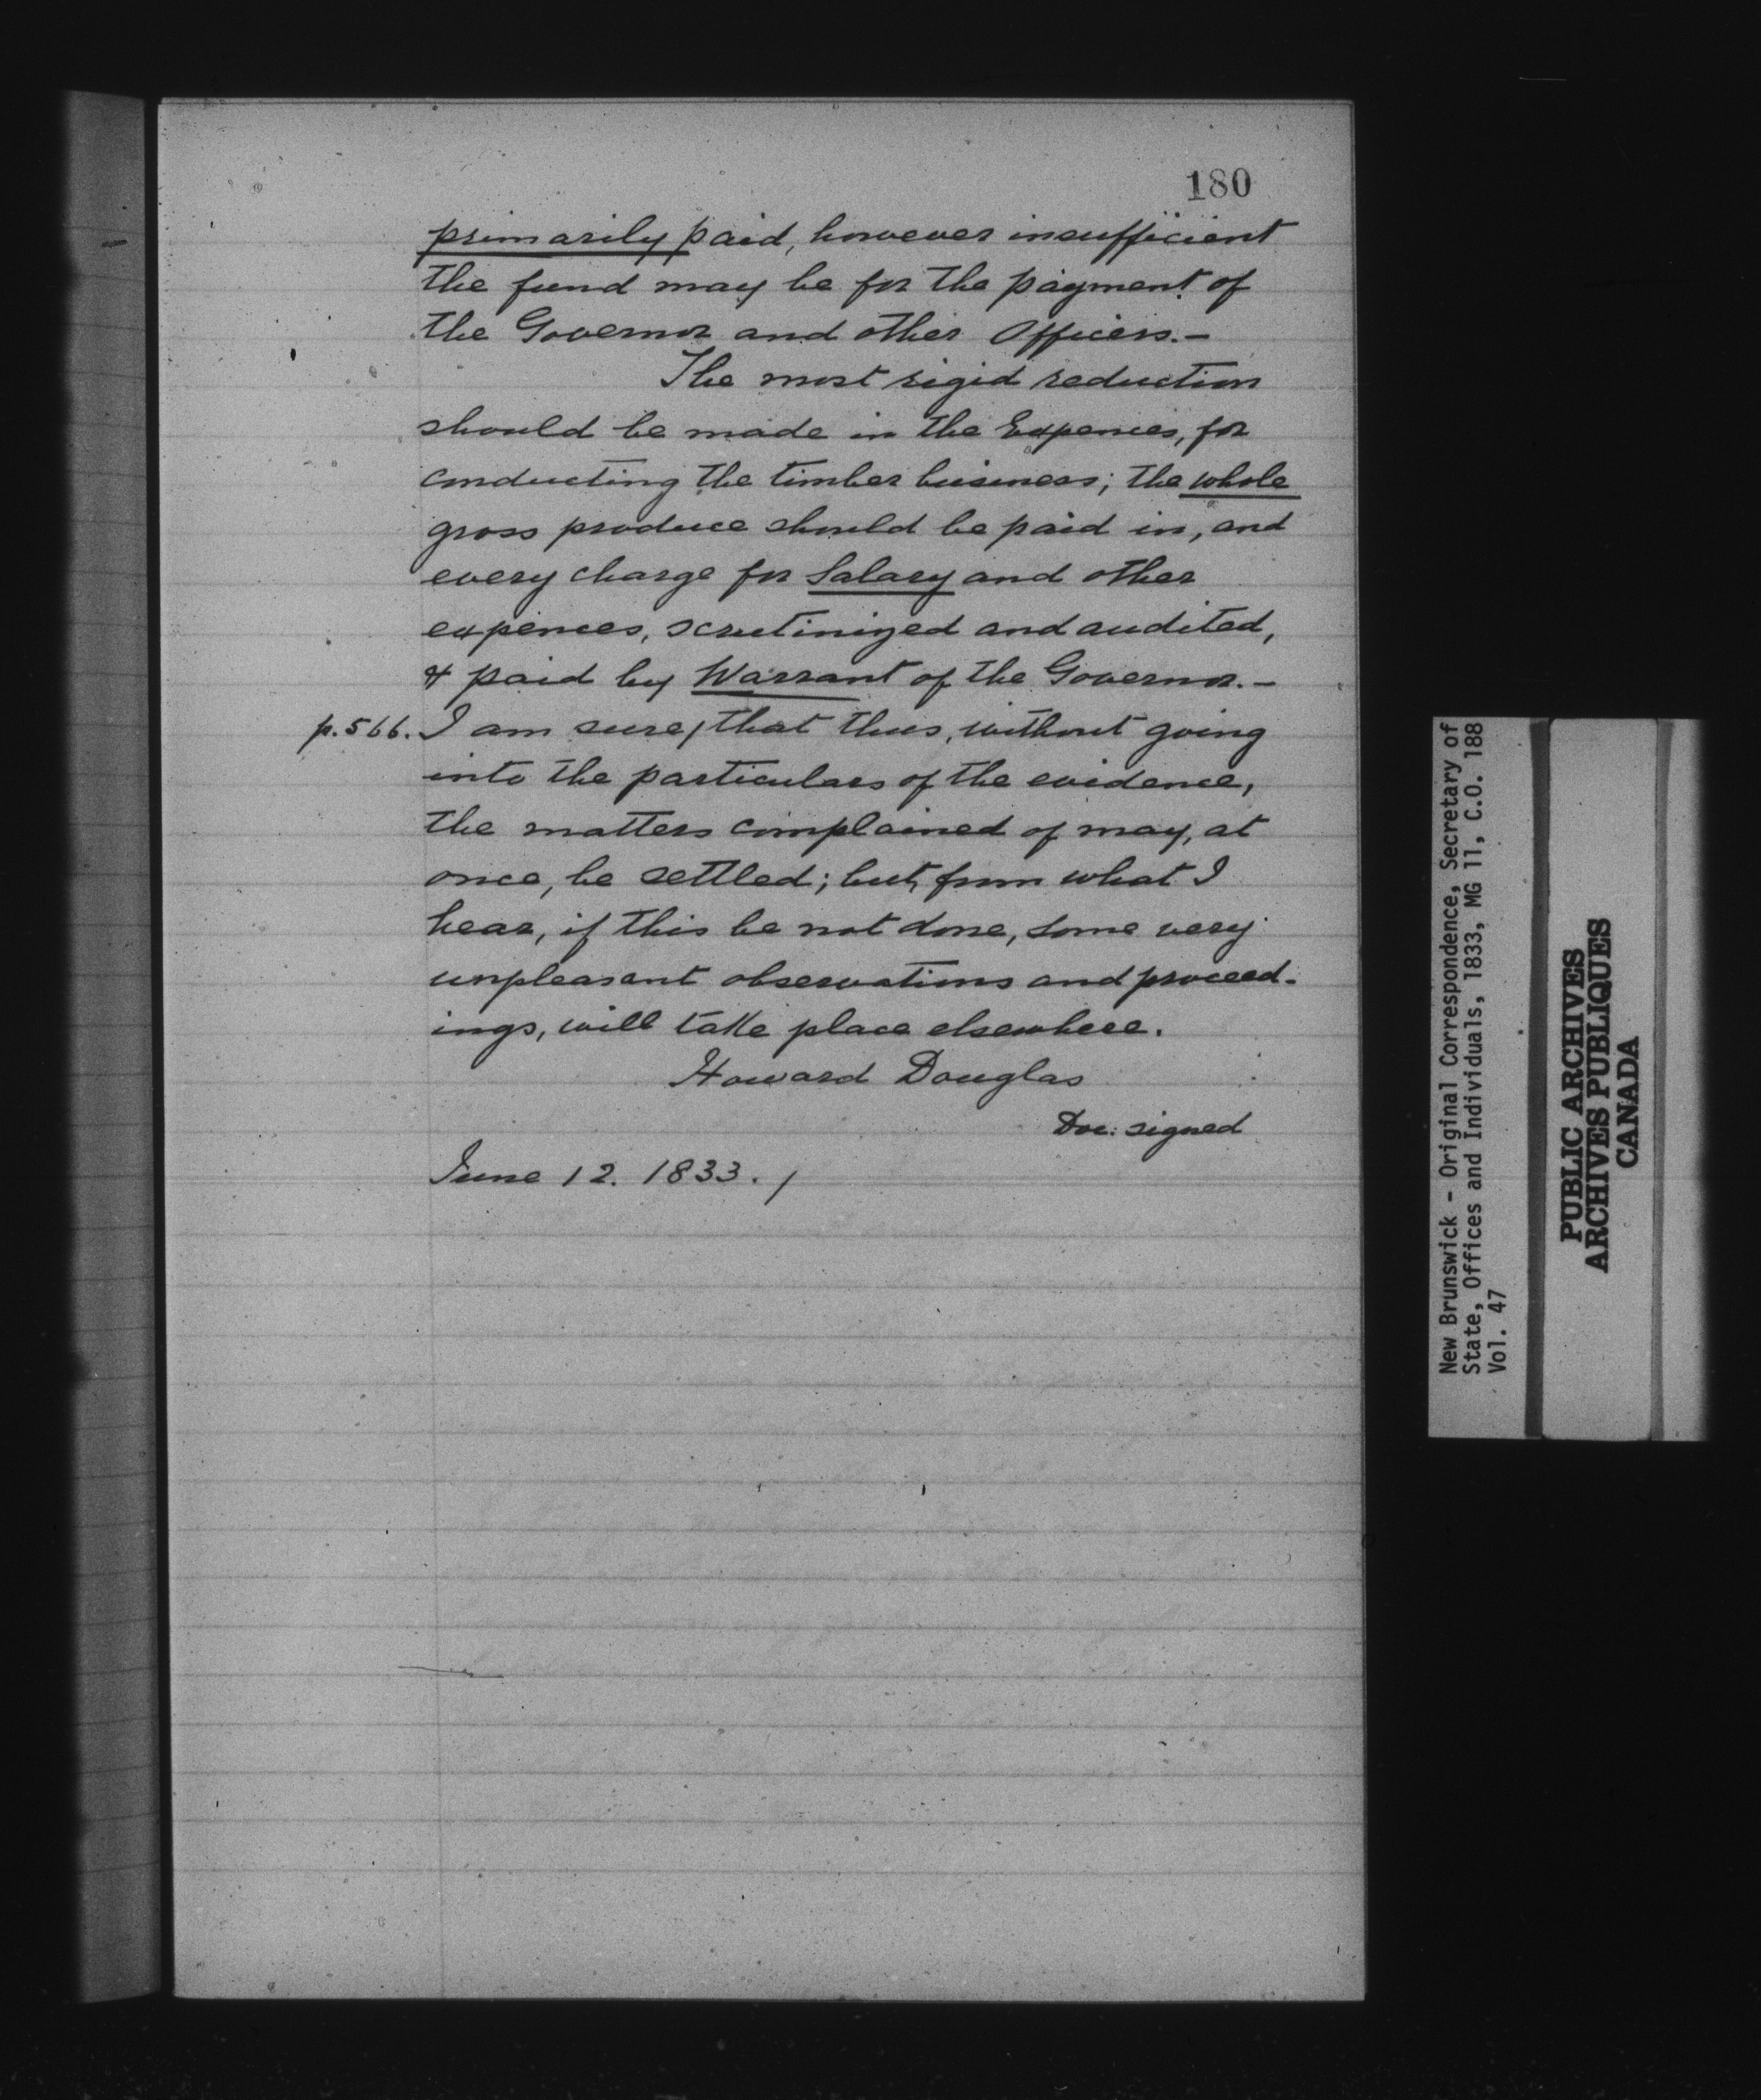 180
primarily paid, however insufficient
the fund may be for the payment of
the Governor and other Officers.—
The most rigid reduction
should be made in the Expences, for
conducting the timber business; the whole
gross produce should be paid in, and
every charge for Salary and other
expences, scrutinized and audited,
& paid by Warrant of the Governor.—
p.566. I am sure, that thus, without going
into the particulars of the evidence,
the matters complained of may, at
once, be settled; but, from what I
hear, if this be not done, some very
unpleasant observations and proceed-
ings, will take place elsewhere.
Howard Douglas
Doc: signed
June 12. 1833. /
New Brunswick - Original Correspondence, Secretary of
State, Offices and Individuals, 1833, MG 11, C.O. 188
Vol. 47
PUBLIC ARCHIVES
ARCHIVES PUBLIQUES
CANADA